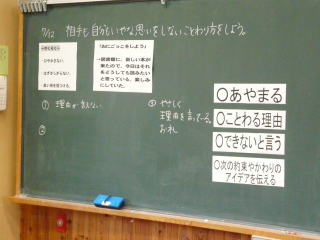 7/12 相手も自分もいやな思いをしないことわり方をしよう。
「おにごっこをしよう」
→図書館に、新しい本が
来たので、今日はそれ
をどうしても読みたい
と思っている。楽しみ
にしていた。
① 理由が言えない
②
③ やさしく
理由を言っている。
おれ
○あやまる
○ことわる理由
○できないと言う
○次の約束やかわりの
アイデアを伝える